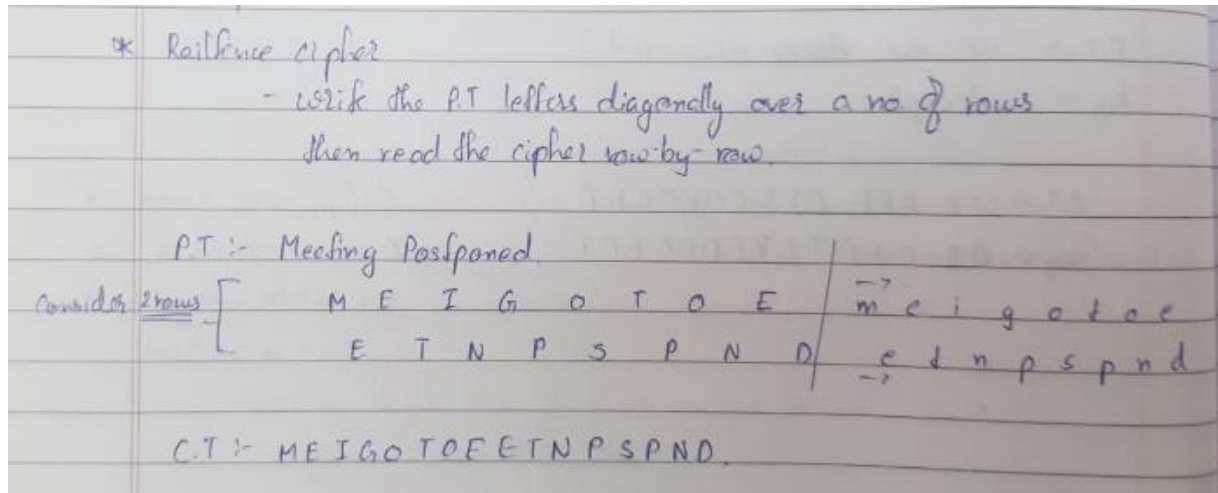 * Railfence cipher
- write the P.T letters diagonally over a no. of rows
then read the cipher row-by-row.
P.T :- Meeting Postponed.
Consider 2 rows M E I G O T O E m e i g o t o e
E T N P S P N D e t n p s p n d
C.T :- MEIGOTOEETNPSPND.